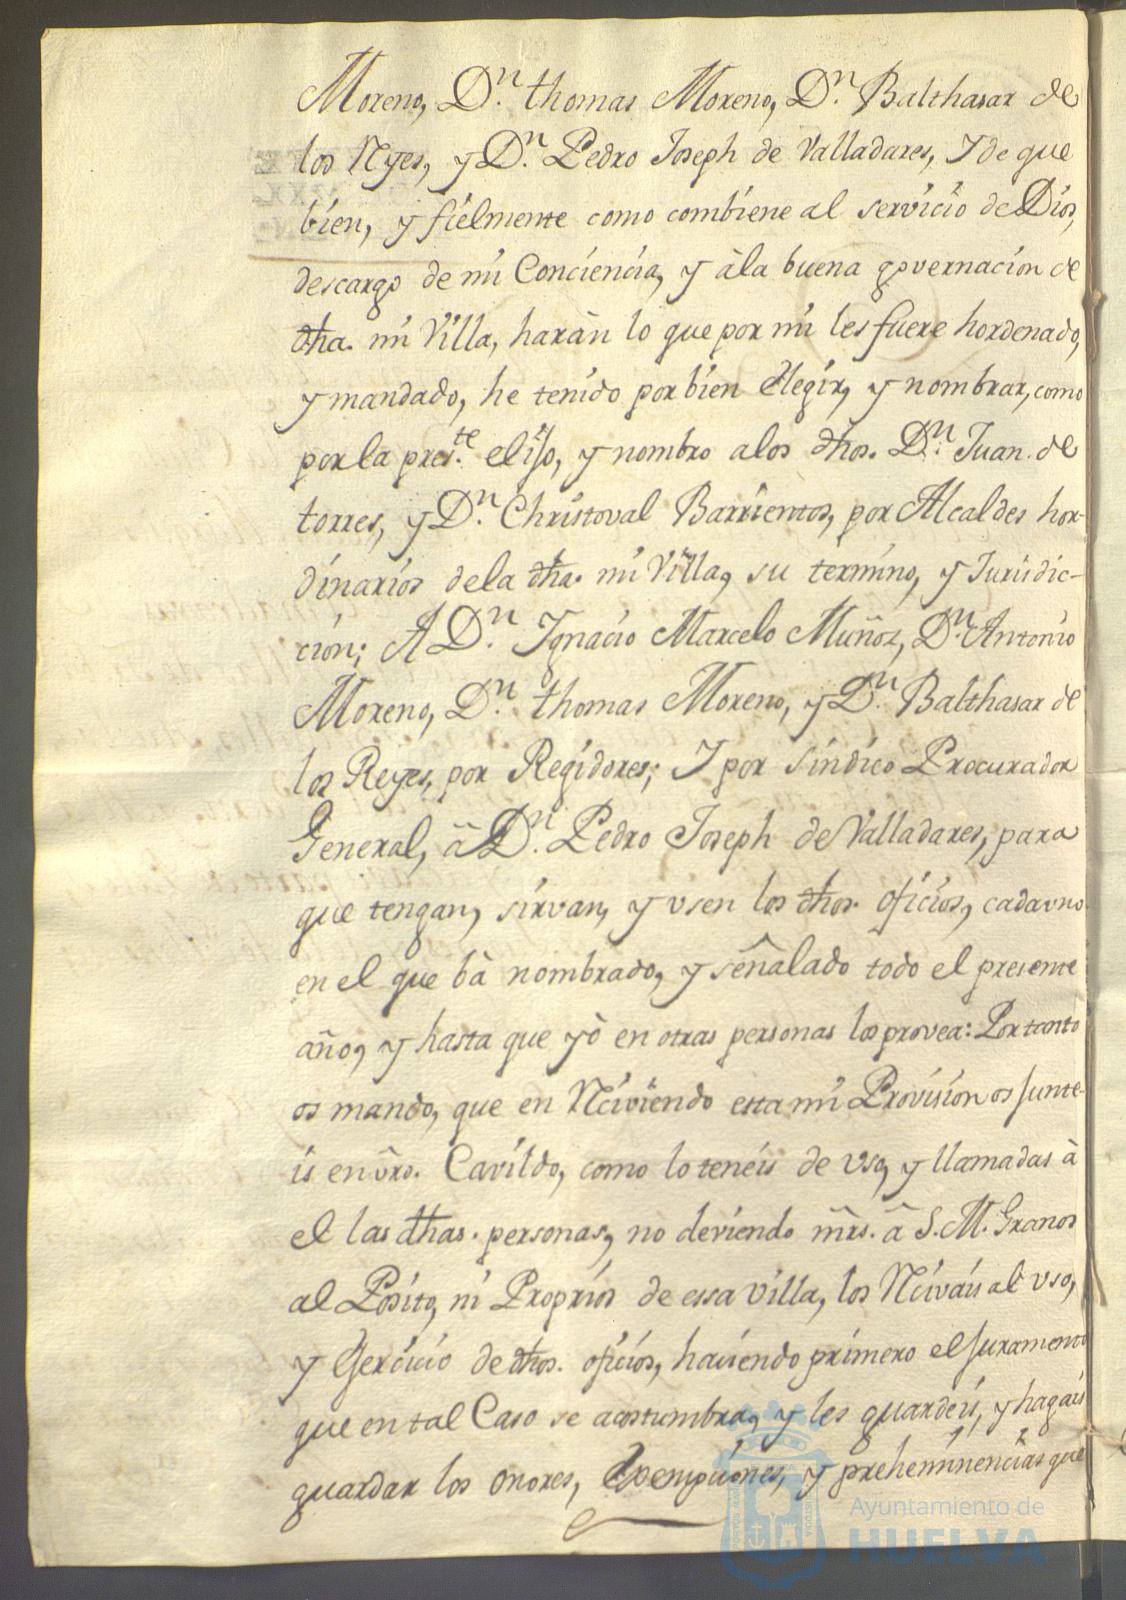 Moreno, Dn. thomas Moreno, Dn. Balthasar de
los Ryes, y Dn. Pedro Joseph de Valladares, Y de que
bien, y fielmente como combiene al servicio de Dios,
descargo de mi Conciencia, y àla buena governacion de
dha. mi Villa, haràn lo que por mi les fuere hordenado,
y mandado, he tenido por bien elegir, y nombrar, como
por la preste. elijo, y nombro a los dhos. Dn. Juan de
torres, y Dn. Christoval Barrientos, por Alcaldes hor-
dinarios dela dha. mi Villa, su termino, y Jurisdic-
cion; A Dn. Ygnacio Marcelo Muñoz, Dn. Antonio
Moreno, Dn. thomas Moreno, y Dn. Balthasar de
los Reyes, por Regidores; Y por sindico Procurador
General, â Dn. Pedro Joseph de Valladares, para
que tengan, sirvan, y usen los dhos. oficios, cada uno
en el que bà nombrado, y señalado todo el presente
año, y hasta que yò en otras personas los provea: Por tanto
os mando, que en Reciviendo esta mi Provision os junte-
is en vro. Cavildo, como lo teneis de uso, y llamadas à
el las dhas. personas, no deviendo mrs. â S. M. Granos
al Posito, ni Proprios de essa villa, los Recivais al uso,
y Exercicio de dhos. oficios, haciendo primero el juramento
que en tal Caso se acostumbra, y les guardeis, y hagais
guardar los onores, Exempciones, y preheminencias que
Ayuntamiento de
HUELVA